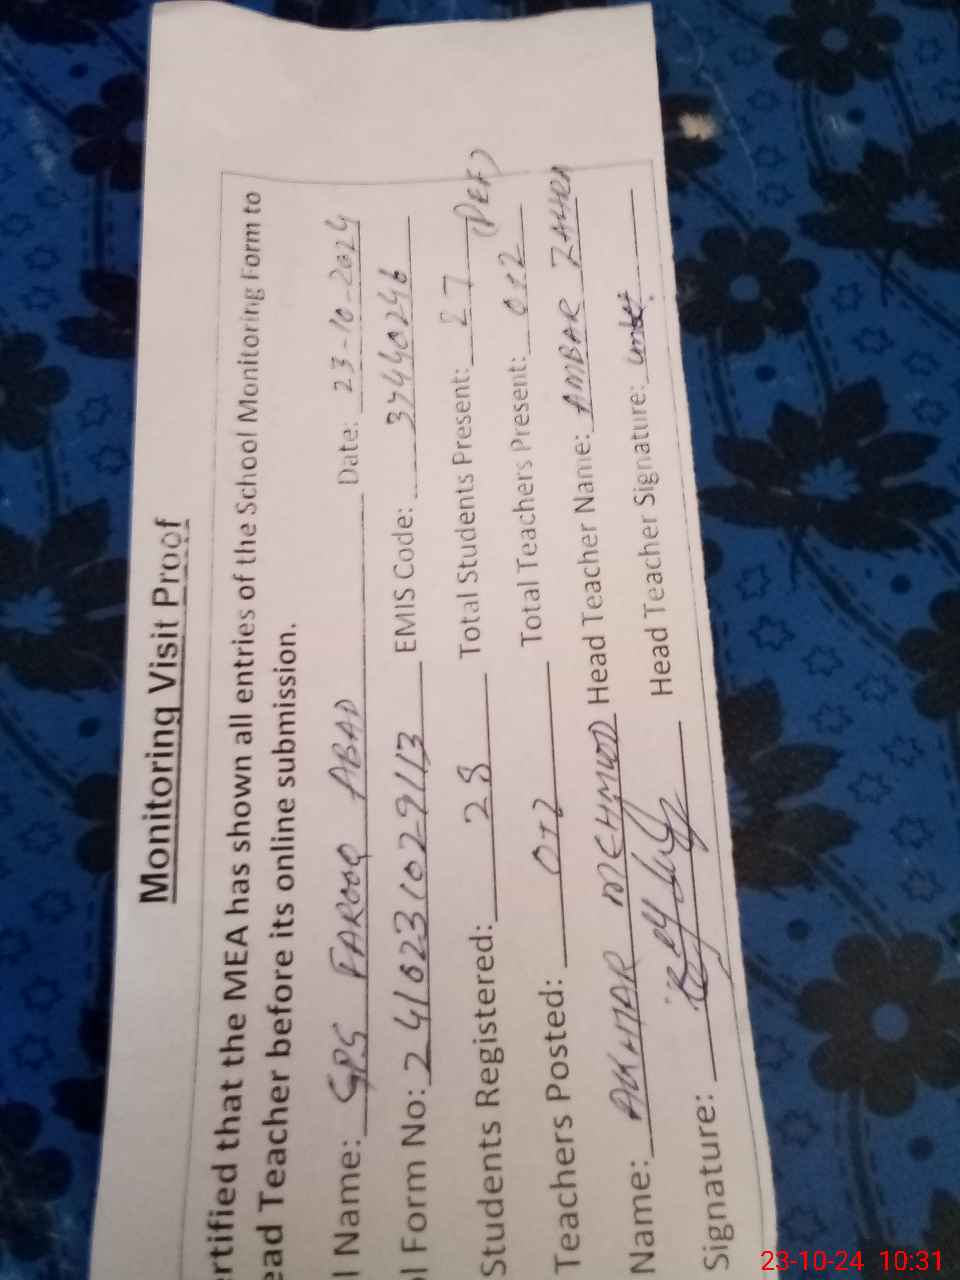 Monitoring Visit Proof
ertified that the MEA has shown all entries of the School Monitoring Form to
ead Teacher before its online submission.
l Name: GPS FAROOQ ABAD Date: 23-10-2024
l Form No: 2410231029113 EMIS Code: 37440246
Students Registered: 28 Total Students Present: 27 (DEF)
Teachers Posted: 0+2 Total Teachers Present: 0+2
Name: MEHMOOD Head Teacher Name: AMBAR ZAHRA
Signature: Head Teacher Signature:
23-10-24 10:31